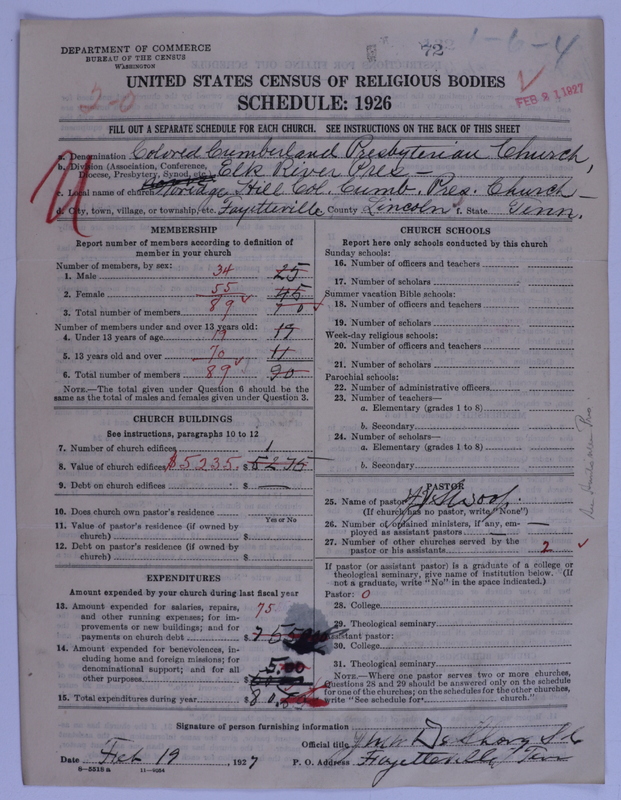 DEPARTMENT OF COMMERCE
BUREAU OF THE CENSUS
WASHINGTON
72
1-6-4
2-0
FEB 21 1927
UNITED STATES CENSUS OF RELIGIOUS BODIES
SCHEDULE: 1926
FILL OUT A SEPARATE SCHEDULE FOR EACH CHURCH. SEE INSTRUCTIONS ON THE BACK OF THIS SHEET
a. Denomination Colored Cumberland Presbyterian Church,
b. Division (Association, Conference, Diocese, Presbytery, Synod, etc.) Elk River Pres-
c. Local name of church Hill Col. Cumb. Pres. Church
d. City, town, village, or township, etc. Fayetteville County Lincoln f. State Tenn.
MEMBERSHIP
Report number of members according to definition of member in your church
Number of members, by sex:
1. Male 34 25
2. Female 55 45
3. Total number of members 89 70
Number of members under and over 13 years old:
4. Under 13 years of age 19 19
5. 13 years old and over 70
6. Total number of members 89 90
NOTE.—The total given under Question 6 should be the same as the total of males and females given under Question 3.
CHURCH BUILDINGS
See instructions, paragraphs 10 to 12
7. Number of church edifices 1
8. Value of church edifices $5235. $ 5275
9. Debt on church edifices $ —
10. Does church own pastor's residence
Yes or No
11. Value of pastor's residence (if owned by church) $
12. Debt on pastor's residence (if owned by church) $
EXPENDITURES
Amount expended by your church during last fiscal year
13. Amount expended for salaries, repairs, and other running expenses; for improvements or new buildings; and for payments on church debt $ 75
14. Amount expended for benevolences, including home and foreign missions; for denominational support; and for all other purposes $ 5.00
15. Total expenditures during year $ 80
CHURCH SCHOOLS
Report here only schools conducted by this church
Sunday schools:
16. Number of officers and teachers
17. Number of scholars
Summer vacation Bible schools:
18. Number of officers and teachers
19. Number of scholars
Week-day religious schools:
20. Number of officers and teachers
21. Number of scholars
Parochial schools:
22. Number of administrative officers
23. Number of teachers—
a. Elementary (grades 1 to 8)
b. Secondary
24. Number of scholars—
a. Elementary (grades 1 to 8)
b. Secondary
PASTOR
25. Name of pastor
(If church has no pastor, write "None")
26. Number of ordained ministers, if any, employed as assistant pastors —
27. Number of other churches served by the pastor or his assistants 2
If pastor (or assistant pastor) is a graduate of a college or theological seminary, give name of institution below. (If not a graduate, write "No" in the space indicated.)
Pastor: 0
28. College
29. Theological seminary
Assistant pastor:
30. College
31. Theological seminary
NOTE.—Where one pastor serves two or more churches, Questions 28 and 29 should be answered only on the schedule for one of the churches; on the schedules for the other churches, write "See schedule for church."
Signature of person furnishing information
Official title
Date Feb 19 1927 P. O. Address Fayetteville Ten
8-5515 a 11-4554